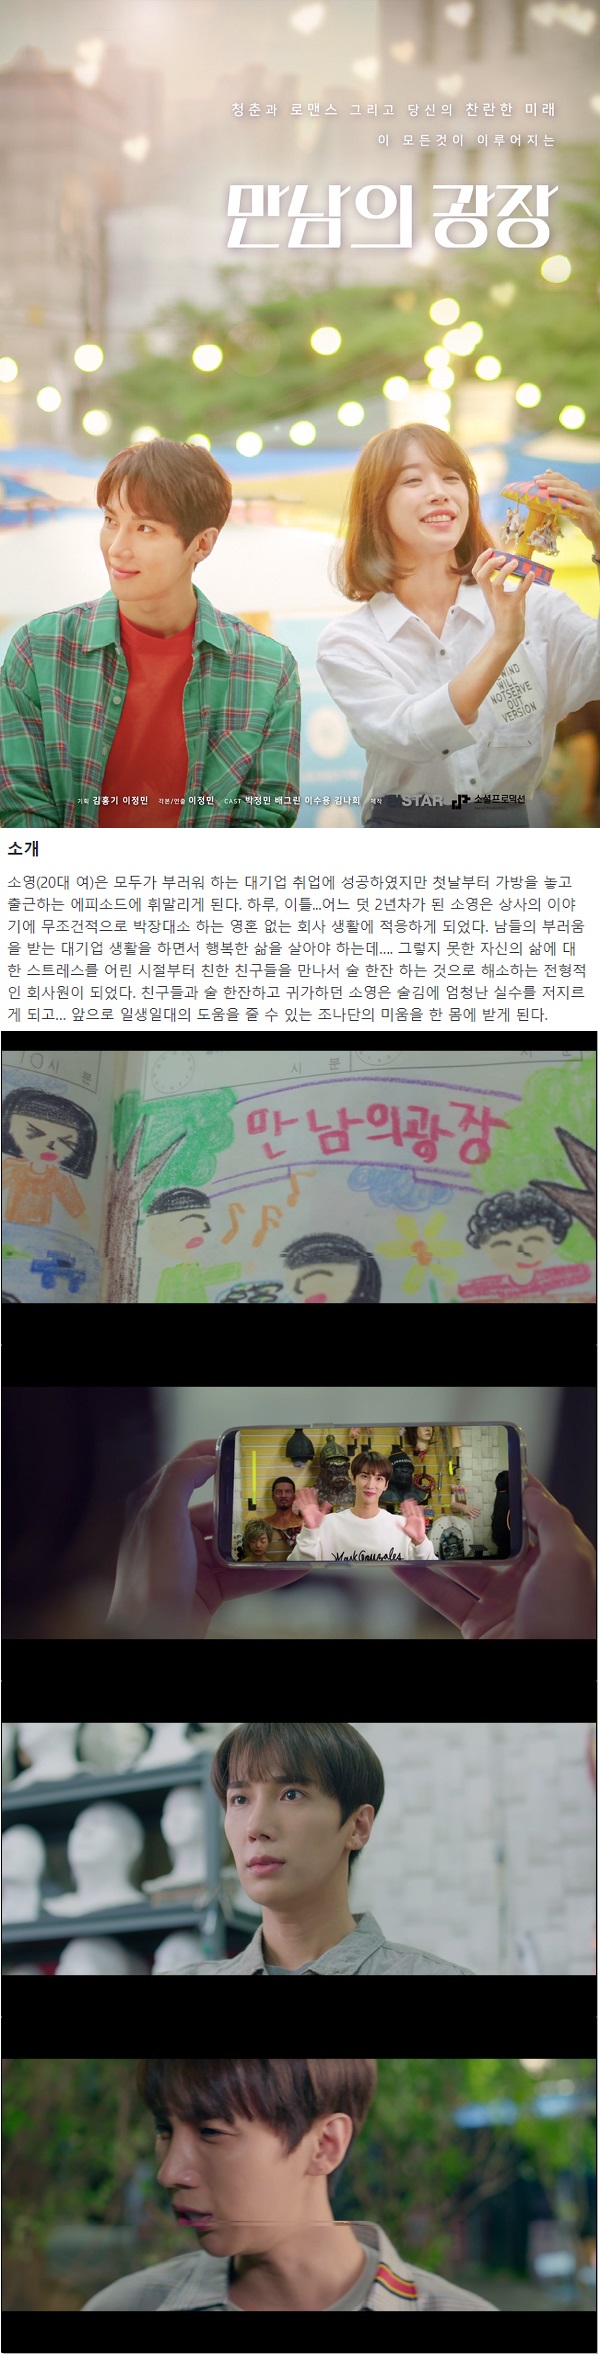 청춘과 로맨스 그리고 당신의 찬란한 미래
이 모든것이 이루어지는
만남의 광장
WIND
WILL
NOTSERVE
OUT
VERSION
기획 김홍기 이정민 각본/연출 이정민 CAST 박정민 배그린 이수용 김나희 제작 STAR 소셜프로덕션
소개
소영(20대 여)은 모두가 부러워 하는 대기업 취업에 성공하였지만 첫날부터 가방을 놓고
출근하는 에피소드에 휘말리게 된다. 하루, 이틀...어느 덧 2년차가 된 소영은 상사의 이야
기에 무조건적으로 박장대소 하는 영혼 없는 회사 생활에 적응하게 되었다. 남들의 부러움
을 받는 대기업 생활을 하면서 행복한 삶을 살아야 하는데.... 그렇지 못한 자신의 삶에 대
한 스트레스를 어린 시절부터 친한 친구들을 만나서 술 한잔 하는 것으로 해소하는 전형적
인 회사원이 되었다. 친구들과 술 한잔하고 귀가하던 소영은 술김에 엄청난 실수를 저지르
게 되고... 앞으로 일생일대의 도움을 줄 수 있는 조나단의 미움을 한 몸에 받게 된다.
10시 분
시 분
시
만남의광장
Mark Gonzales